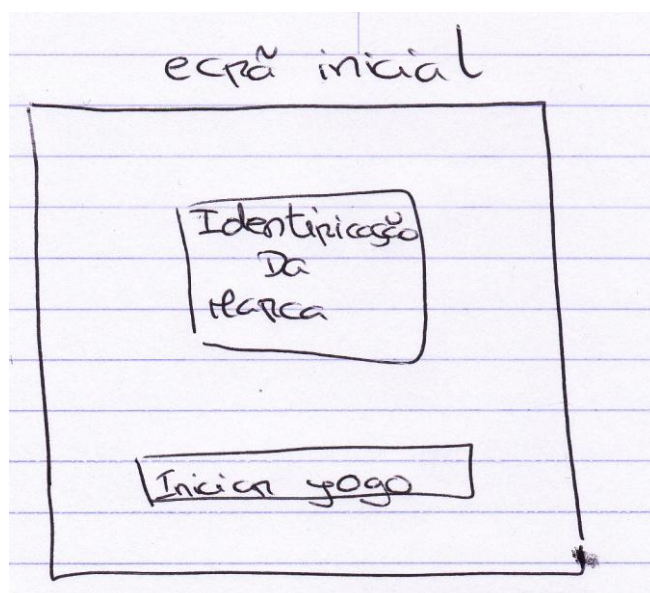 ecrã inicial
Identificação
Da
Marca
Iniciar jogo